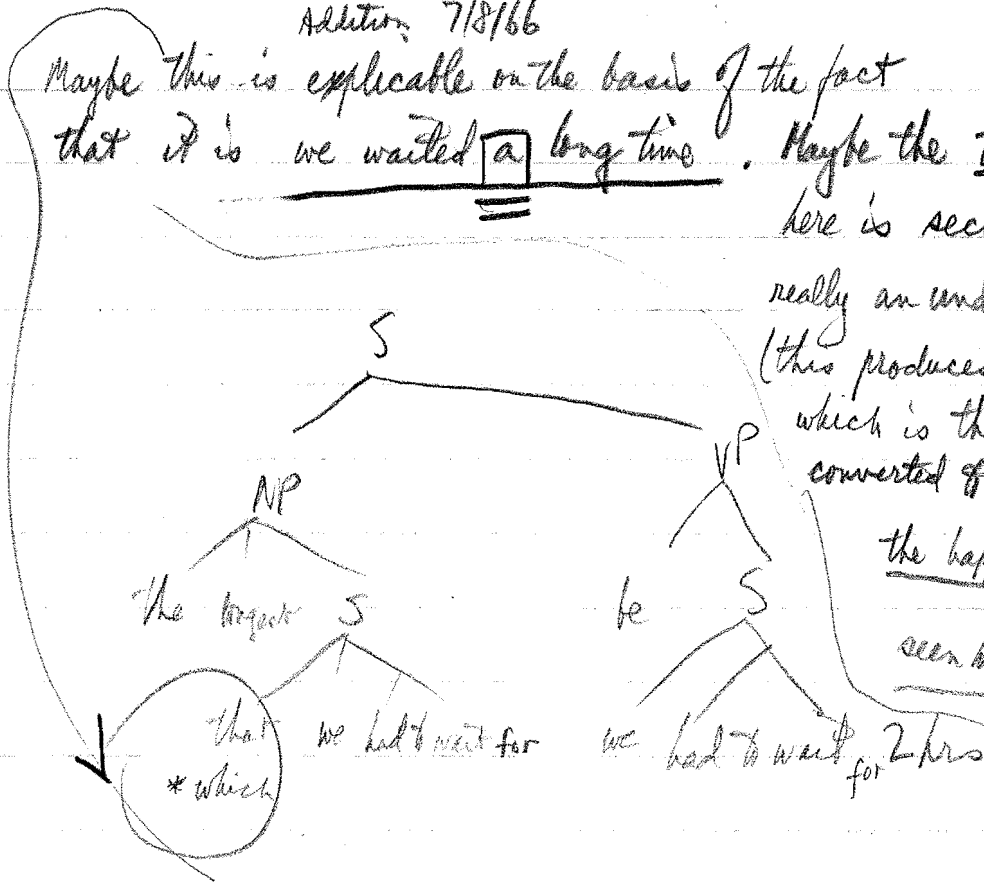 Addition 7/8/66
Maybe this is explicable on the basis of the fact
that it is we waited a long time. Maybe the
here is
really an
(this produces
which is
converted of
the
seen
S
NP VP
the longest S be S
that we had to wait for we had to wait for 2 hrs
* which